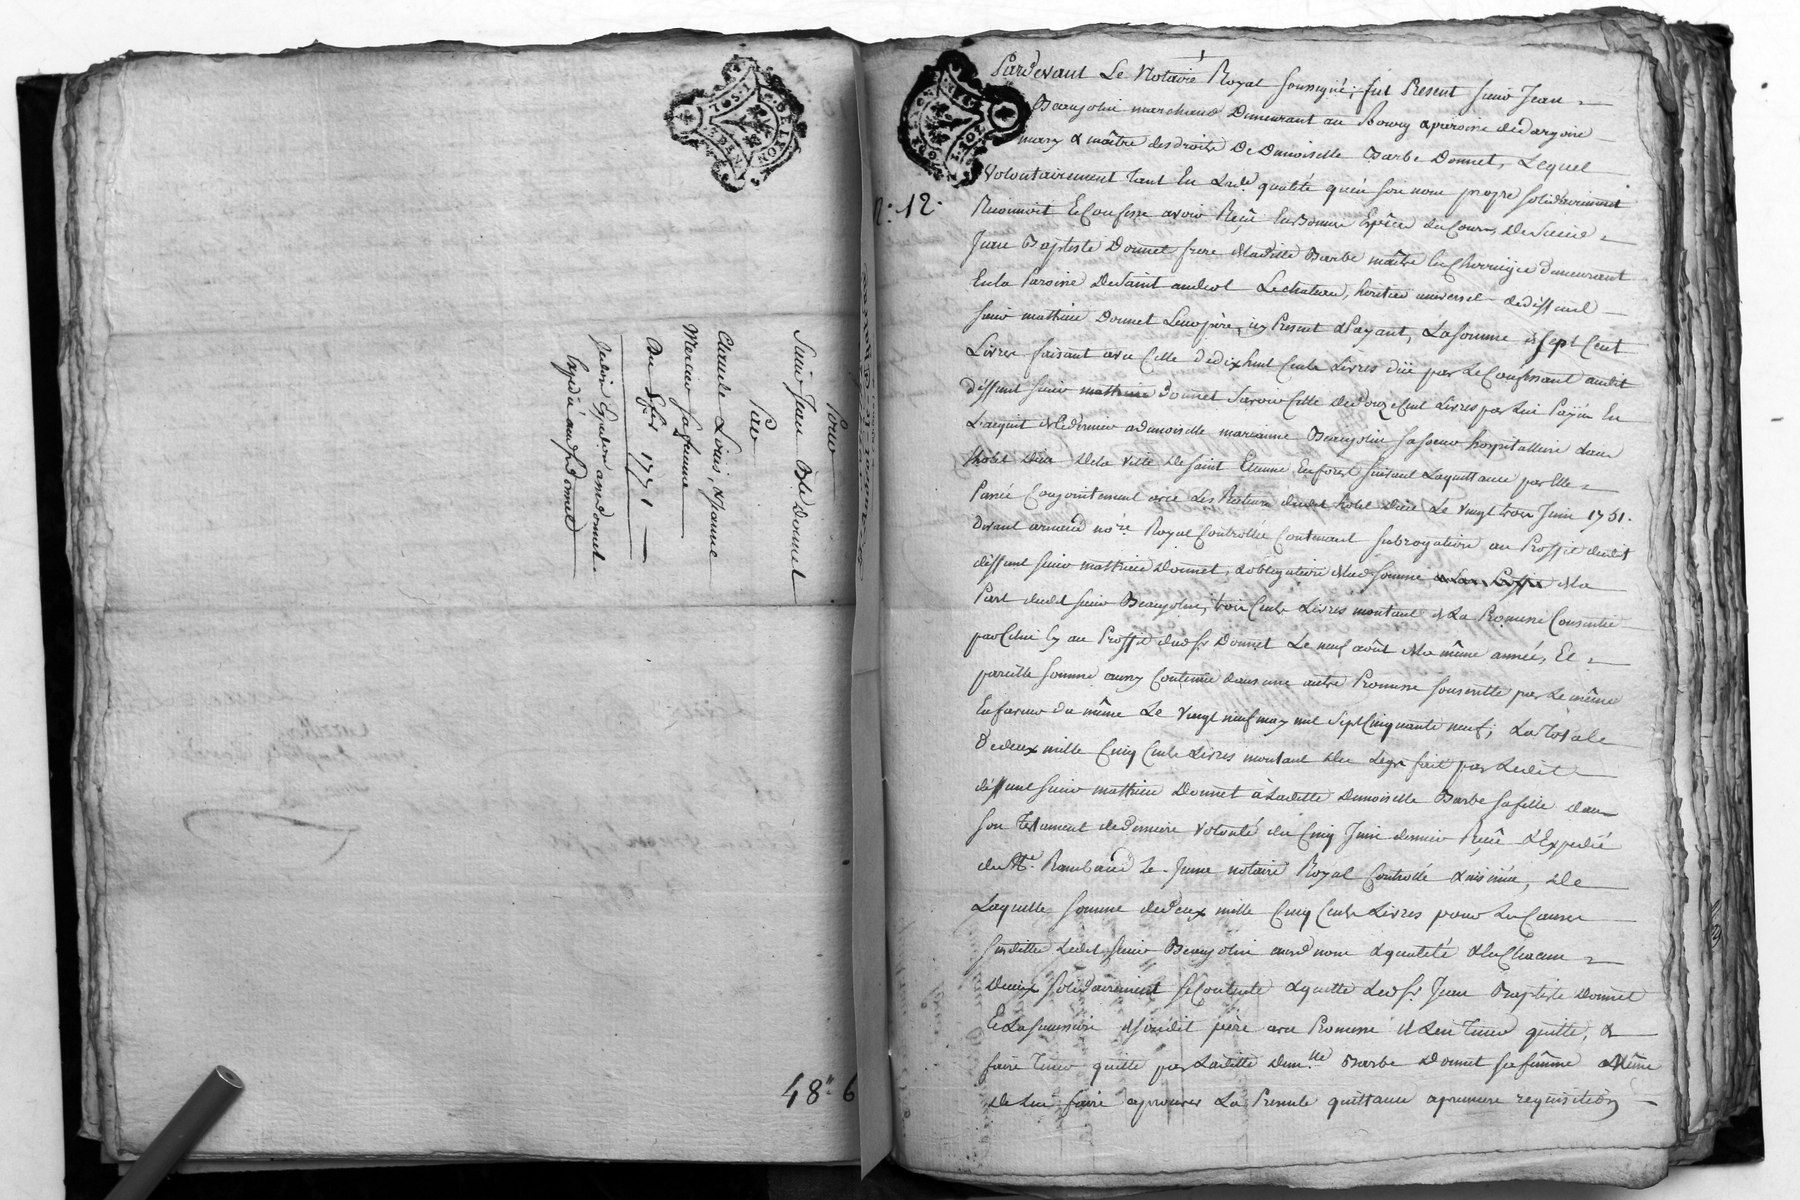 Pour
Sieur Jean Bte Donnet
Par
Claude Louis, & Jeanne
Mercier sa femme
Du 8 fev 1771
48" 6
n: 12.
Pardevant Le Notaire Royal soussigné, fut Présent sieur Jean
Beaujolin marchand Demeurant au Bourg & paroisse de d'argoire
mary & maître des droits De Demoiselle Barbe Donnet, Lequel
Volontairement tant En Ladte qualité qu'en son nom propre solidairement
Reconnoit & Confesse avoir Reçû En Bonne Espèce du Cours, De sieur
Jean Baptiste Donnet frere de Ladite Barbe maître En Chirurgie demeurant
En la Paroisse De Saint andeol Le chateau, heritier universel de deffunt
sieur mathieu Donnet Leur père, icy Present & Payant, La somme de sept Cent
Livres faisant avec Celle de dix huit Cents Livres düe par Le Confessant audit
deffunt sieur mathieu Donnet savoir Celle de douze Cent Livres par Lui Payée En
L'acquit de Ce dernier a demoiselle marianne Beaujolin sa soeur hospitalliere dans
L'hotel Dieu De la Ville de Saint Etienne En forez suivant La quittance par Elle
Passée Conjointement avec Les Recteurs dudit hotel Dieu Le Vingt trois Juin 1761.
Devant armand nore Royal Controllée Contenant subrogation au Proffit dudit
deffunt sieur mathieu Donnet, & obligatoire de Lad somme de La
Part dudit sieur Beaujolin, trois Cents Livres montant de La Promesse Consentie
par Celui cy au Proffit dud sr Donnet Le neuf août de La même année, Et
pareille somme aussy Contenüe dans une autre Promesse souscritte par Le même
En faveur du même Le Vingt neuf may mil sept Cinquante neuf; La totale
de deux mille Cinq Cents Livres montant du Legs fait par Ledit
deffunt sieur mathieu Donnet à Ladite Demoiselle Barbe sa fille dans
son Testament de derniere Volonté du Cinq Juin dernier Reçû & Expedié
de Me. Rambaud Le Jeune notaire Royal Controllé & insinué, de
Laquelle somme de deux mille Cinq Cents Livres pour Les Causes
susdittes Ledit sieur Beaujolin aud nom & qualité & En Chacun
D'eux solidairement se Contente & quitte Led sr. Jean Baptiste Donnet
Et La succession de sondit père avec Promesse de L'en tenir quitte, &
faire tenir quitte par Laditte Demlle Barbe Donnet sa femme & Même
de Lui faire aprouver La Presente quittance a premiere requisition